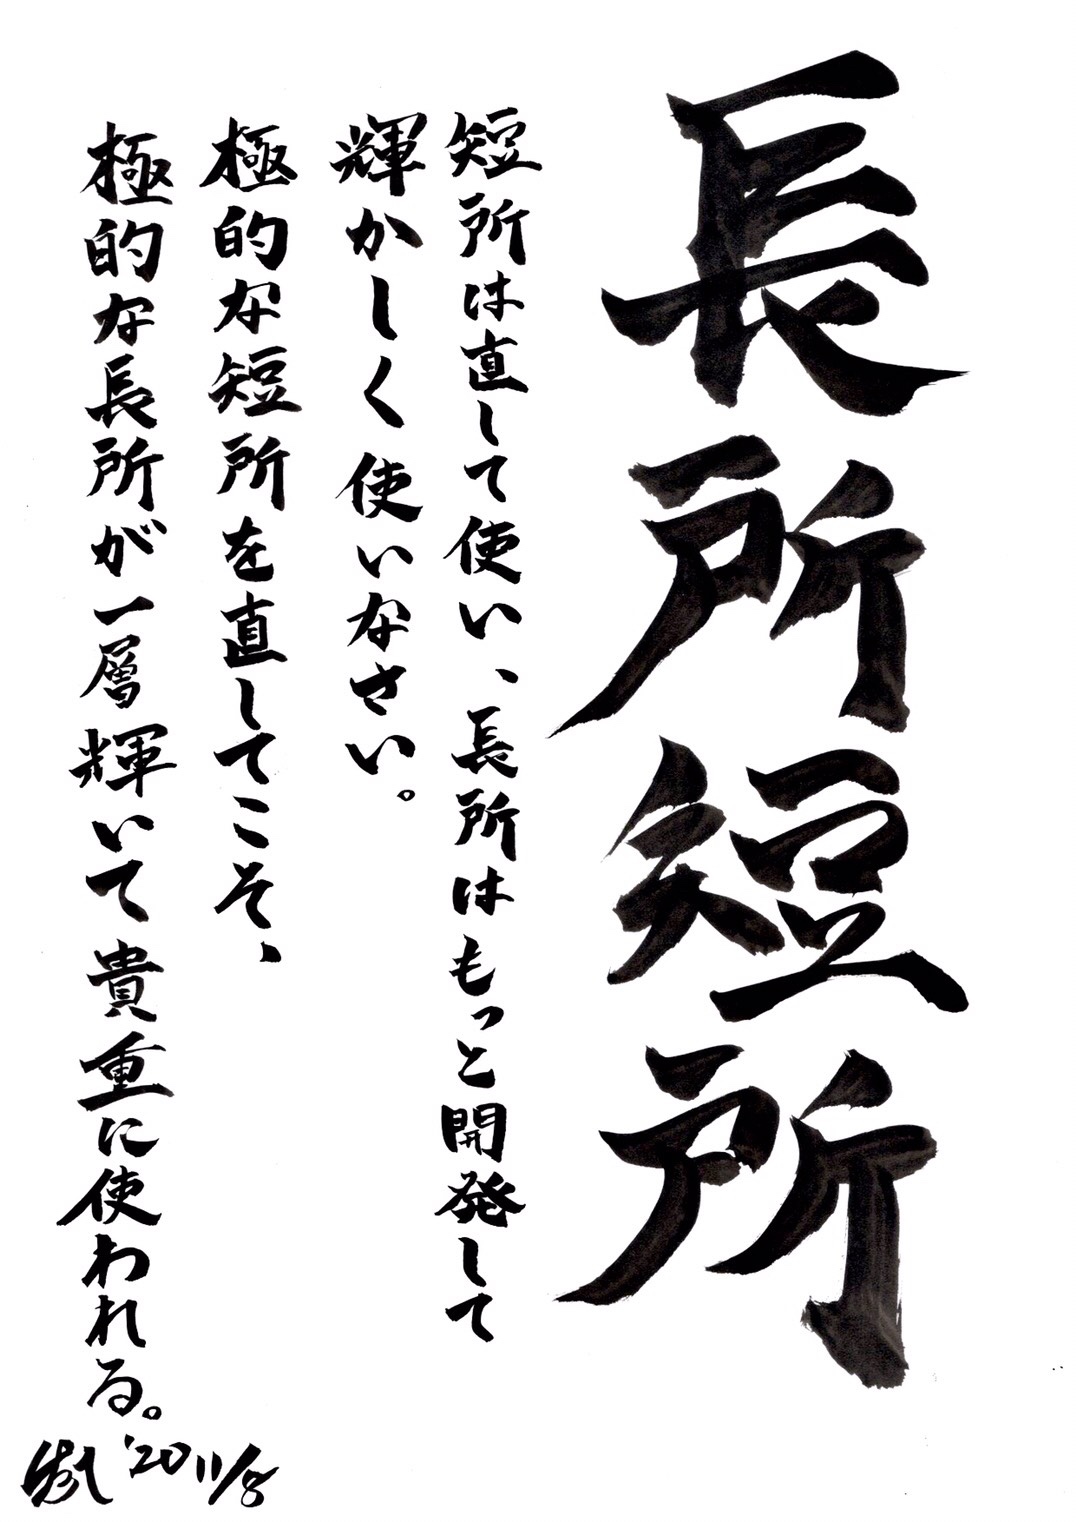 長所短所
短所は直して使い、長所はもっと開発して
輝かしく使いなさい。
極的な短所を直してこそ、
極的な長所が一層輝いて貴重に使われる。
'20 11/8